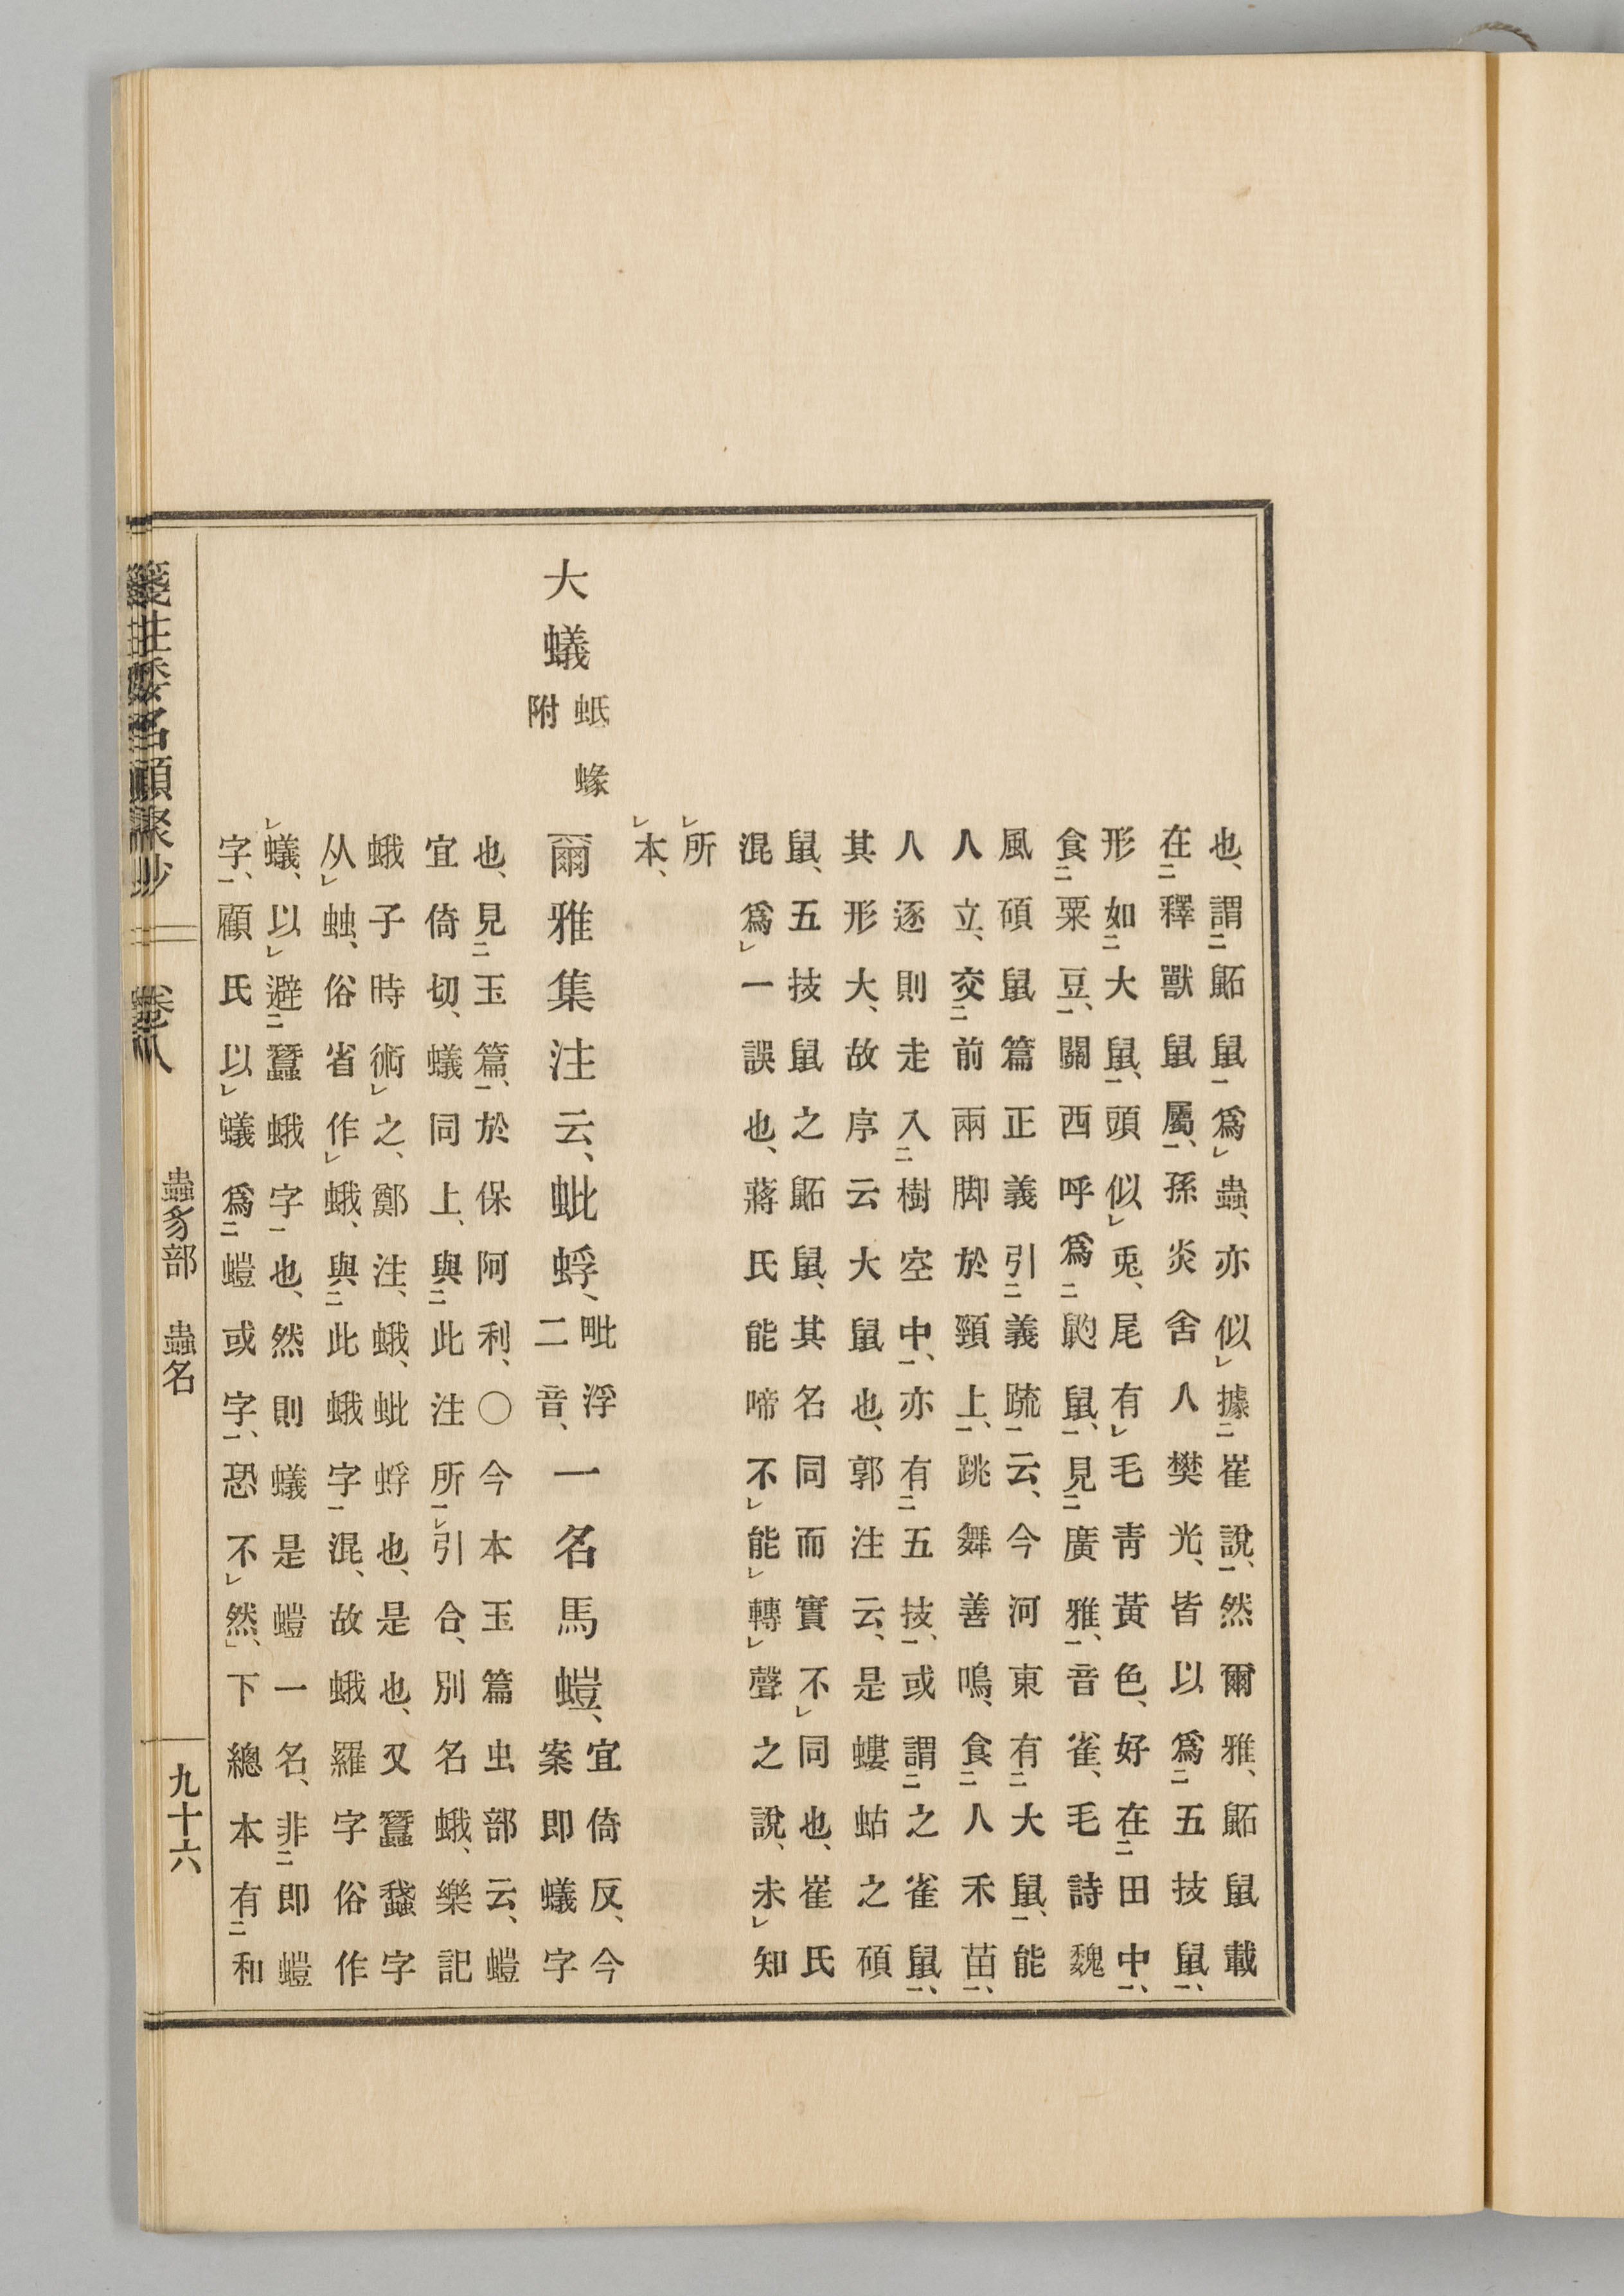 也、謂二鼫鼠一爲レ蟲、亦似レ據二崔說一、然爾雅、鼫鼠載
在二釋獸鼠屬一、孫炎舍人樊光、皆以爲二五技鼠一、
形如二大鼠一、頭似レ兎、尾有レ毛靑黃色、好在二田中一、
食二粟豆一、關西呼爲二鼩鼠一、見二廣雅一、音雀、毛詩魏
風碩鼠篇正義引二義疏一云、今河東有二大鼠一、能
人立、交二前兩脚於頸上一、跳舞善鳴、食二人禾苗一、
人逐則走入二樹空中一、亦有二五技一、或謂二之雀鼠一、
其形大、故序云大鼠也、郭注云、是螻蛄之碩
鼠、五技鼠之鼫鼠、其名同而實不レ同也、崔氏
混爲レ一誤也、蔣氏能啼不レ能レ轉レ聲之說、未レ知
レ所
レ本、
大蟻 蚳蝝附
爾雅集注云、蚍蜉、毗浮二音、一名馬螘、宜倚反、今案即蟻字
也、見二玉篇一、於保阿利、○今本玉篇虫部云、螘
宜倚切、蟻同上、與二此注所一レ引合、別名蛾、樂記
蛾子時術レ之、鄭注、蛾、蚍蜉也、是也、又蠶蝥字
从レ䖵、俗省作レ蛾、與二此蛾字一混、故蛾羅字俗作
レ蟻、以レ避二蠶蛾字一也、然則蟻是螘一名、非二即螘
字一、顧氏以レ蟻爲二螘或字一、恐不レ然、下總本有二和
箋注倭名類聚抄 卷八 蟲豸部 蟲名 九十六